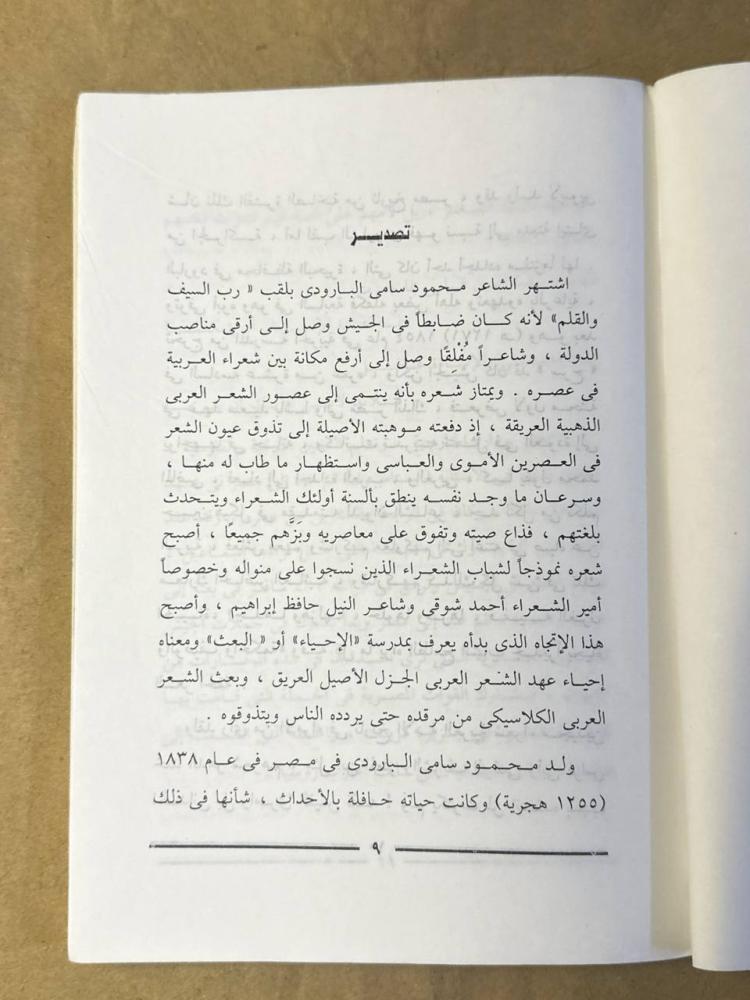 تصديــر
اشتهر الشاعر محمود سامى البارودى بلقب « رب السيف
والقلم» لأنه كان ضابطاً فى الجيش وصل إلى أرقى مناصب
الدولة ، وشاعراً مُفْلِقًا وصل إلى أرفع مكانة بين شعراء العربية
فى عصره . ويمتاز شعره بأنه ينتمى إلى عصور الشعر العربى
الذهبية العريقة ، إذ دفعته موهبته الأصيلة إلى تذوق عيون الشعر
فى العصرين الأموى والعباسى واستظهار ما طاب له منها ،
وسرعان ما وجد نفسه ينطق بألسنة أولئك الشعراء ويتحدث
بلغتهم ، فذاع صيته وتفوق على معاصريه وبَزَّهم جميعًا ، أصبح
شعره نموذجاً لشباب الشعراء الذين نسجوا على منواله وخصوصاً
أمير الشعراء أحمد شوقى وشاعر النيل حافظ إبراهيم ، وأصبح
هذا الإتجاه الذى بدأه يعرف بمدرسة «الإحياء» أو « البعث» ومعناه
إحياء عهد الشعر العربى الجزل الأصيل العريق ، وبعث الشعر
العربى الكلاسيكى من مرقده حتى يردده الناس ويتذوقوه .
ولد محمود سامى البارودى فى مصر فى عام ١٨٣٨
(١٢٥٥ هجرية) وكانت حياته حافلة بالأحداث ، شأنها فى ذلك
٩